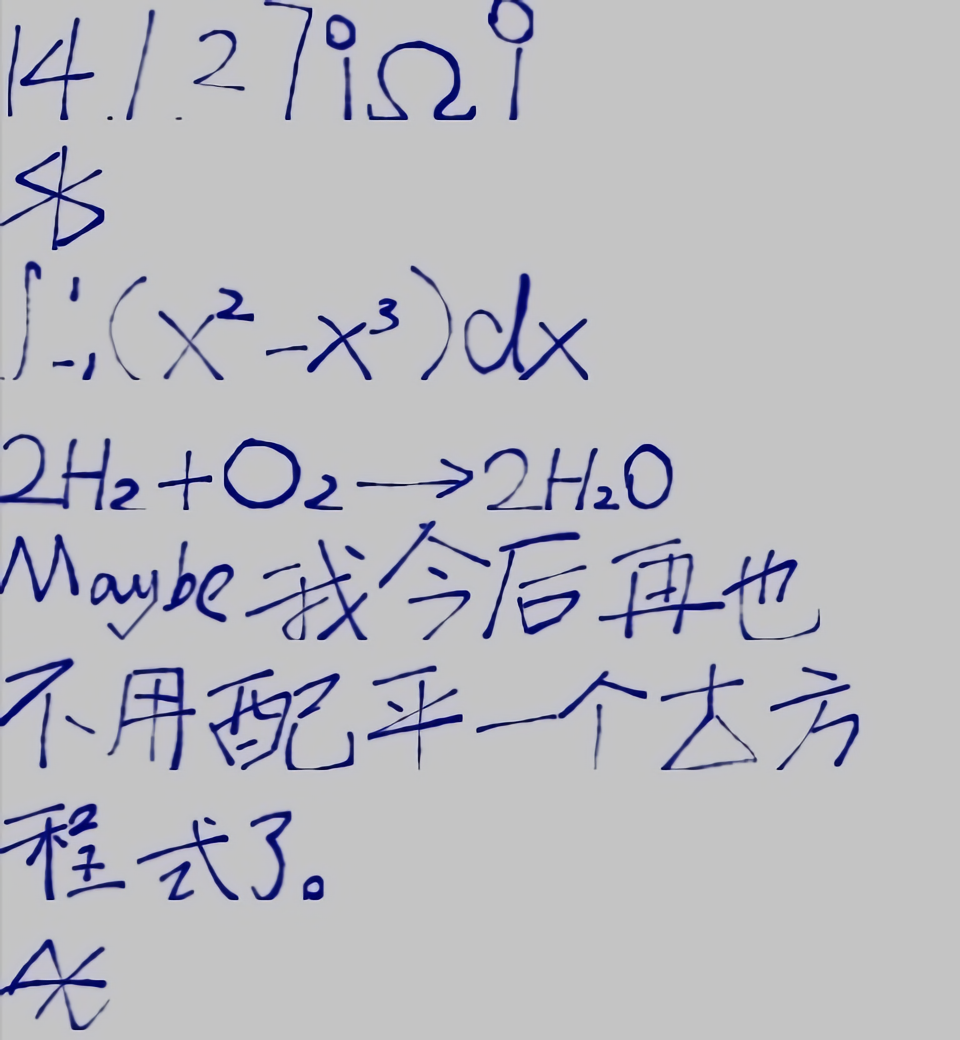 14.1.27iΩi
∫₋₁¹(x²-x³)dx
2H₂+O₂→2H₂O
Maybe我今后再也
不用配平一个去方
程式了。